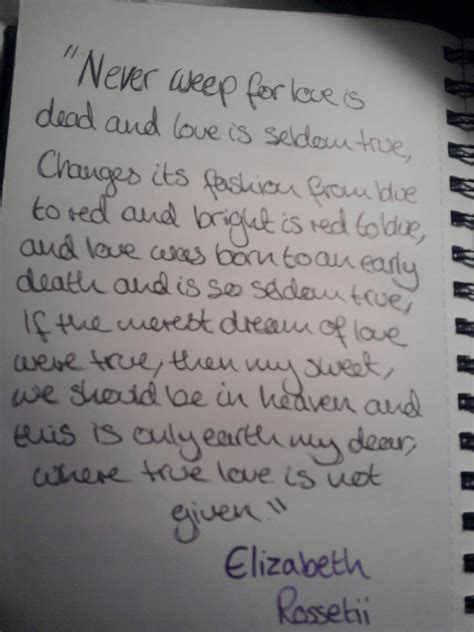 "Never weep for love is
dead and love is seldom true,
Changes its fashion from blue
to red and bright is red to blue,
and love was born to an early
death and is so seldom true,
If the merest dream of love
were true, then my sweet,
we should be in heaven and
this is only earth my dear,
where true love is not
given."
Elizabeth
Rossetii